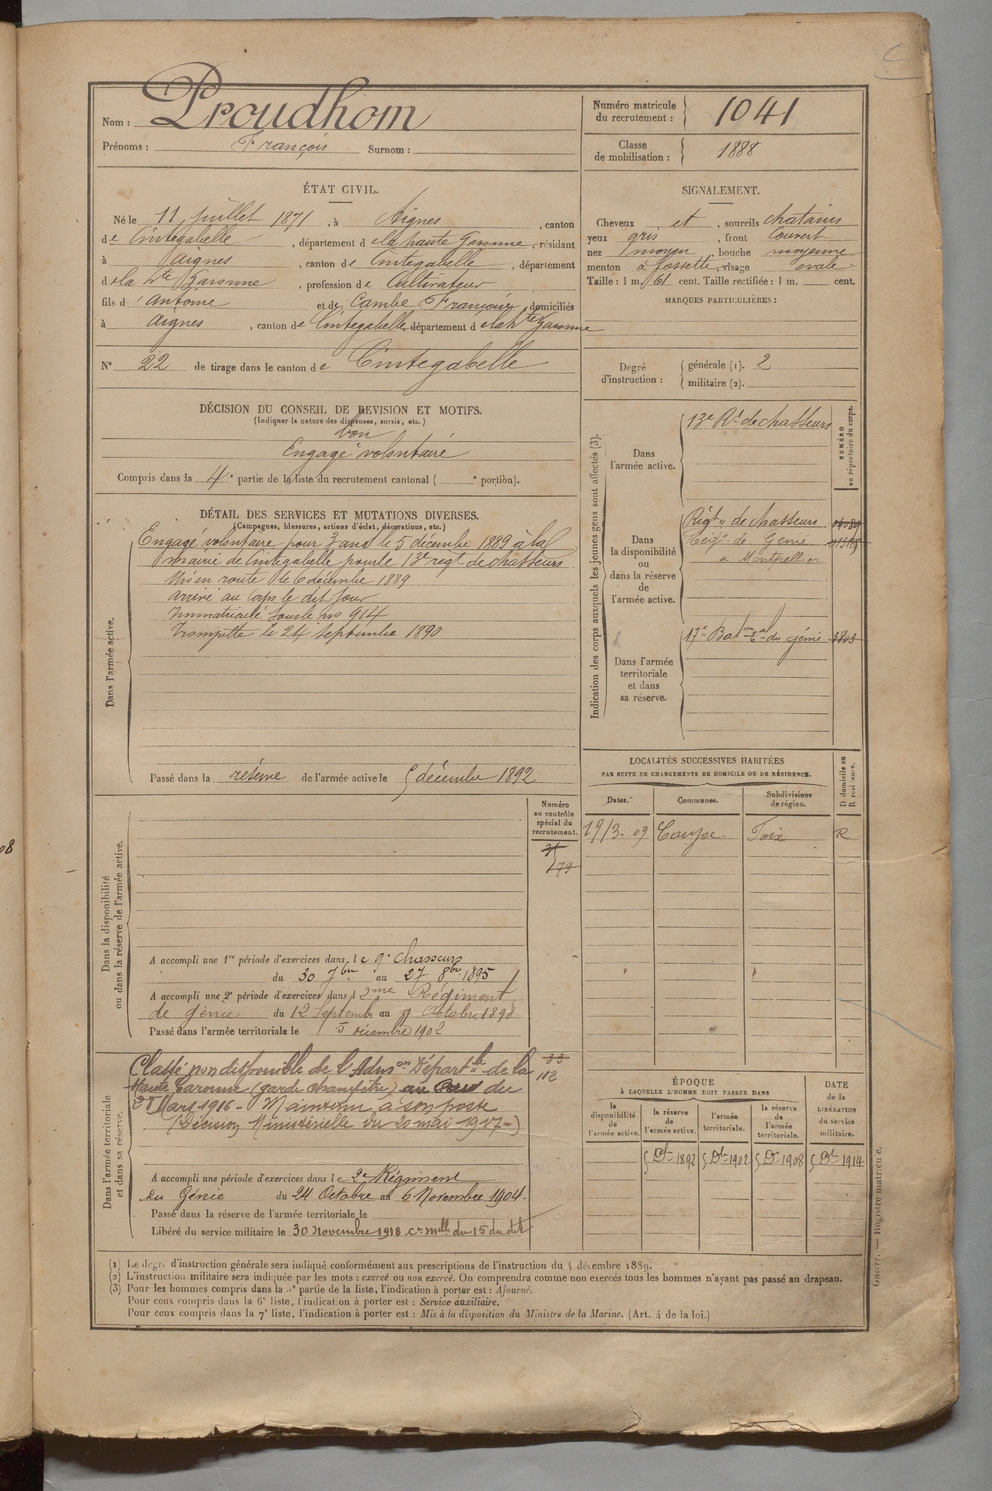 Nom : Proudhom
Prénoms : François Surnom :
Numéro matricule du recrutement : 1041
Classe de mobilisation : 1888
ÉTAT CIVIL.
Né le 11 juillet 1871, à Aignes, canton
de Cintegabelle, département de la haute Garonne, résidant
à Aignes, canton de Cintegabelle, département
de la hte Garonne, profession de Cultivateur
fils d'Antoine et de Cambe Françoise, domiciliés
à Aignes, canton de Cintegabelle, département de la hte Garonne
N° 22 de tirage dans le canton de Cintegabelle
SIGNALEMENT.
Cheveux et, sourcils chatains
yeux gris, front Couvert
nez moyen, bouche moyenne
menton à fossette, visage ovale
Taille : 1 m. 61 cent. Taille rectifiée : 1 m. cent.
MARQUES PARTICULIÈRES :
Degré d'instruction : générale (1). 2
militaire (2).
DÉCISION DU CONSEIL DE REVISION ET MOTIFS.
(Indiquer la nature des dispenses, sursis, etc.)
bon
Engagé volontaire
Compris dans la 4e partie de la liste du recrutement cantonal ( e portion).
DÉTAIL DES SERVICES ET MUTATIONS DIVERSES.
(Campagnes, blessures, actions d'éclat, décorations, etc.)
Dans l'armée active.
Engagé volontaire pour 3 ans le 5 décembre 1889 à la
mairie de Cintegabelle pour le 13e regt de chasseurs
Mis en route le 6 décembre 1889
arrivé au corps le dit jour
Immatriculé sous le no 914
Trompette le 24 septembre 1890
Passé dans la réserve de l'armée active le 5 décembre 1892
Indication des corps auxquels les jeunes gens sont affectés (3).
NUMÉRO au répertoire du corps.
Dans l'armée active.
13e Rt de chasseurs
Dans la disponibilité ou dans la réserve de l'armée active.
Régt de chasseurs
Reigt de Génie
à Montpellier
Dans l'armée territoriale et dans sa réserve.
17e Baton tal du génie
LOCALITÉS SUCCESSIVES HABITÉES
PAR SUITE DE CHANGEMENTS DE DOMICILE OU DE RÉSIDENCE.
Dates. Communes. Subdivisions de région. D domicile ou R résidence.
Foix R
Numéro au contrôle spécial du recrutement.
Dans la disponibilité ou dans la réserve de l'armée active.
A accompli une 1re période d'exercices dans le 9e Chasseurs
du 30 7bre au 27 8bre 1895
A accompli une 2e période d'exercices dans le 2me Régiment
de génie du 12 Septembre au 9 Octobre 1898
Passé dans l'armée territoriale le 5 décembre 1902
112
Dans l'armée territoriale et dans sa réserve.
Classé non disponible de l'Admon Départle de la
Haute Garonne (garde champêtre) du
Mars 1916 - Maintenu à son poste
(Décision Ministérielle du 20 mai 1917-)
A accompli une période d'exercices dans le 2e Régiment
du Génie du 24 Octobre au 6 Novembre 1904.
Passé dans la réserve de l'armée territoriale le
Libéré du service militaire le 30 novembre 1918 Cre mlle du 15 du dit
ÉPOQUE
À LAQUELLE L'HOMME DOIT PASSER DANS
la disponibilité de l'armée active. la réserve de l'armée active. l'armée territoriale. la réserve de l'armée territoriale.
DATE de la LIBÉRATION du service militaire.
5 Dbre 1892 5 Dbre 1902 5 Dbre 1908 5 Dbre 1914
(1) Le degré d'instruction générale sera indiqué conformément aux prescriptions de l'instruction du 4 décembre 1889.
(2) L'instruction militaire sera indiquée par les mots : exercé ou non exercé. On comprendra comme non exercés tous les hommes n'ayant pas passé au drapeau.
(3) Pour les hommes compris dans la 5e partie de la liste, l'indication à porter est : Ajourné.
Pour ceux compris dans la 6e liste, l'indication à porter est : Service auxiliaire.
Pour ceux compris dans la 7e liste, l'indication à porter est : Mis à la disposition du Ministre de la Marine. (Art. 4 de la loi.)
Guerre. — Registre matricule.